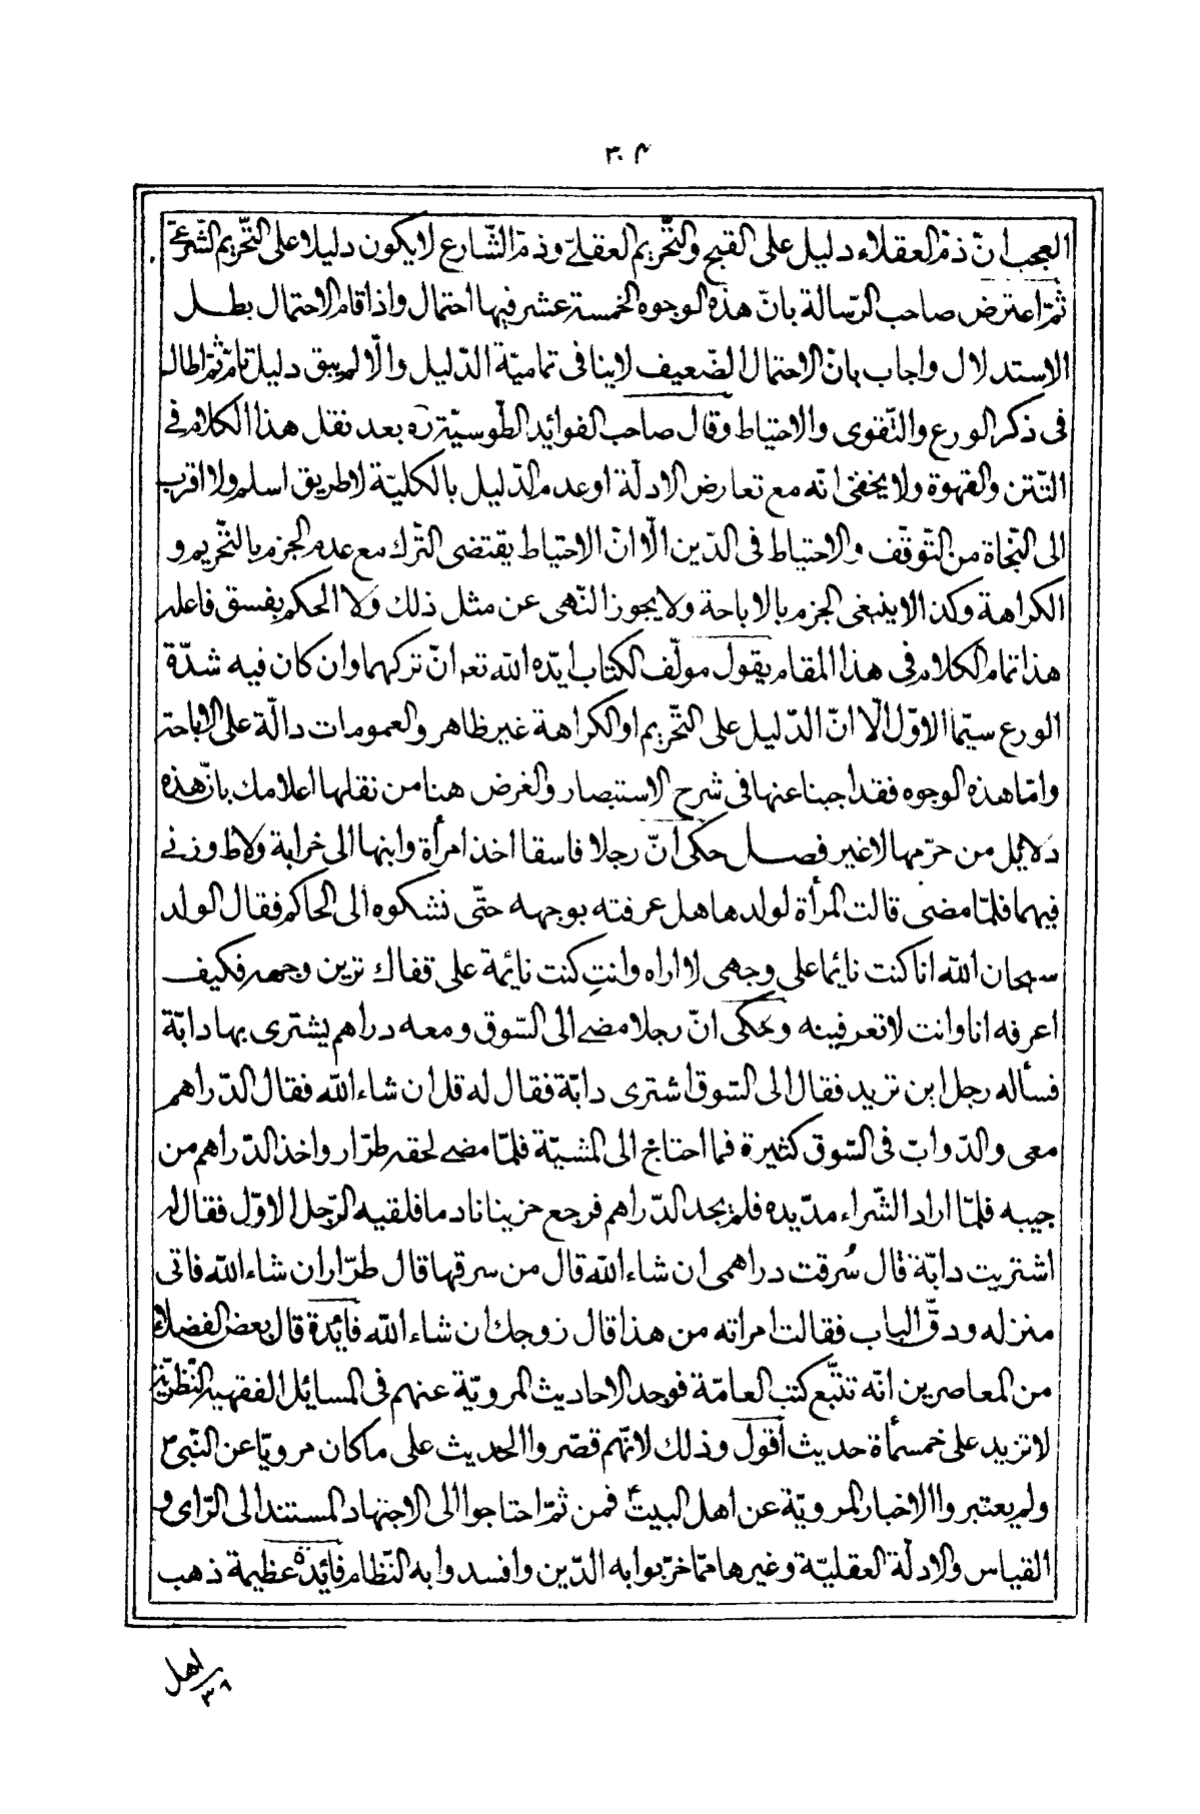 ٣٠٤
العجب انّ ذمّ العقلاء دليل على القبح والتّحريم العقلىّ وذمّ الشّارع لا يكون دليلا على التّحريم الشّرعىّ
ثمّ اعترض صاحب الرّسالة بانّ هذه الوجوه الخمسة عشر فيها احتمال واذا قام الاحتمال بطل
الاستدلال واجاب بانّ الاحتمال الضّعيف لا ينافى تماميّة الدّليل والّا لم يبق دليل تامّ ثمّ اطال
فى ذكر الورع والتّقوى والاحتياط وقال صاحب الفوائد الطّوسيّة ره بعد نقل هذا الكلام فى
التّتن والقهوة ولا يخفى انه مع تعارض الادلّة او عدم الدّليل بالكليّة لا طريق اسلم ولا اقرب
الى النّجاة من التّوقّف والاحتياط فى الدّين الّا انّ الاحتياط يقتضى التّرك مع عدم الجزم بالتّحريم و
الكراهة وكذا لا ينبغى الجزم بالاباحة ولا يجوز النّهى عن مثل ذلك ولا الحكم بفسق فاعله
هذا تمام الكلام فى هذا المقام يقول مولّف الكتاب ايّده الله تعه انّ تركهما وان كان فيه شدّة
الورع سيّما الاوّل الّا انّ الدّليل على التّحريم او الكراهة غير ظاهر والعمومات دالّة على الاباحة
وامّا هذه الوجوه فقد اجبنا عنها فى شرح الاستبصار والغرض هنا من نقلها اعلامك بانّ هذه
دلائل من حرّمها لا غير فصل حكى انّ رجلا فاسقا اخذ امرأة وابنها الى خرابة ولاط وزنى
فيهما فلمّا مضى قالت المرأة لولدها هل عرفته بوجهه حتّى نشكوه الى الحاكم فقال الولد
سبحان الله انا كنت نايما على وجهى لا اراه وانتِ كنت نايمة على قفاك ترين وجهه فكيف
اعرفه انا وانت لا تعرفينه وحكى انّ رجلا مضى الى السّوق ومعه دراهم يشترى بها دابّة
فسأله رجل اين تريد فقال الى السّوق اشترى دابّة فقال له قل ان شاء الله فقال الدّراهم
معى والدّوابّ فى السّوق كثيرة فما احتاج الى المشيّة فلمّا مضى لحقه طرّار واخذ الدّراهم من
جيبه فلمّا اراد الشّراء مدّ يده فلم يجد الدّراهم فرجع حزينا نادما فلقيه الرّجل الاوّل فقال له
اشتريت دابّة قال سُرقت دراهمى ان شاء الله قال من سرقها قال طرّار ان شاء الله فاتى
منزله ودقّ الباب فقالت امراته من هذا قال زوجك ان شاء الله فائدة قال بعض الفضلاء
من المعاصرين انّه تتبّع كتب العامّة فوجد الاحاديث المرويّة عنهم فى المسائل الفقهيّة النّظريّة
لا تزيد على خمسمأة حديث أقول وذلك لانّهم قصّروا الحديث على ما كان مرويّا عن النّبىّ ص
ولم يعتبروا الاخبار المرويّة عن اهل البيت ع فمن ثمّ احتاجوا الى الاجتهاد المستند الى الرّاى و
القياس والادلّة العقليّة وغيرها ممّا خرّبوا به الدّين وافسدوا به النّظام فائدة عظيمة ذهب
اهل
٣٦